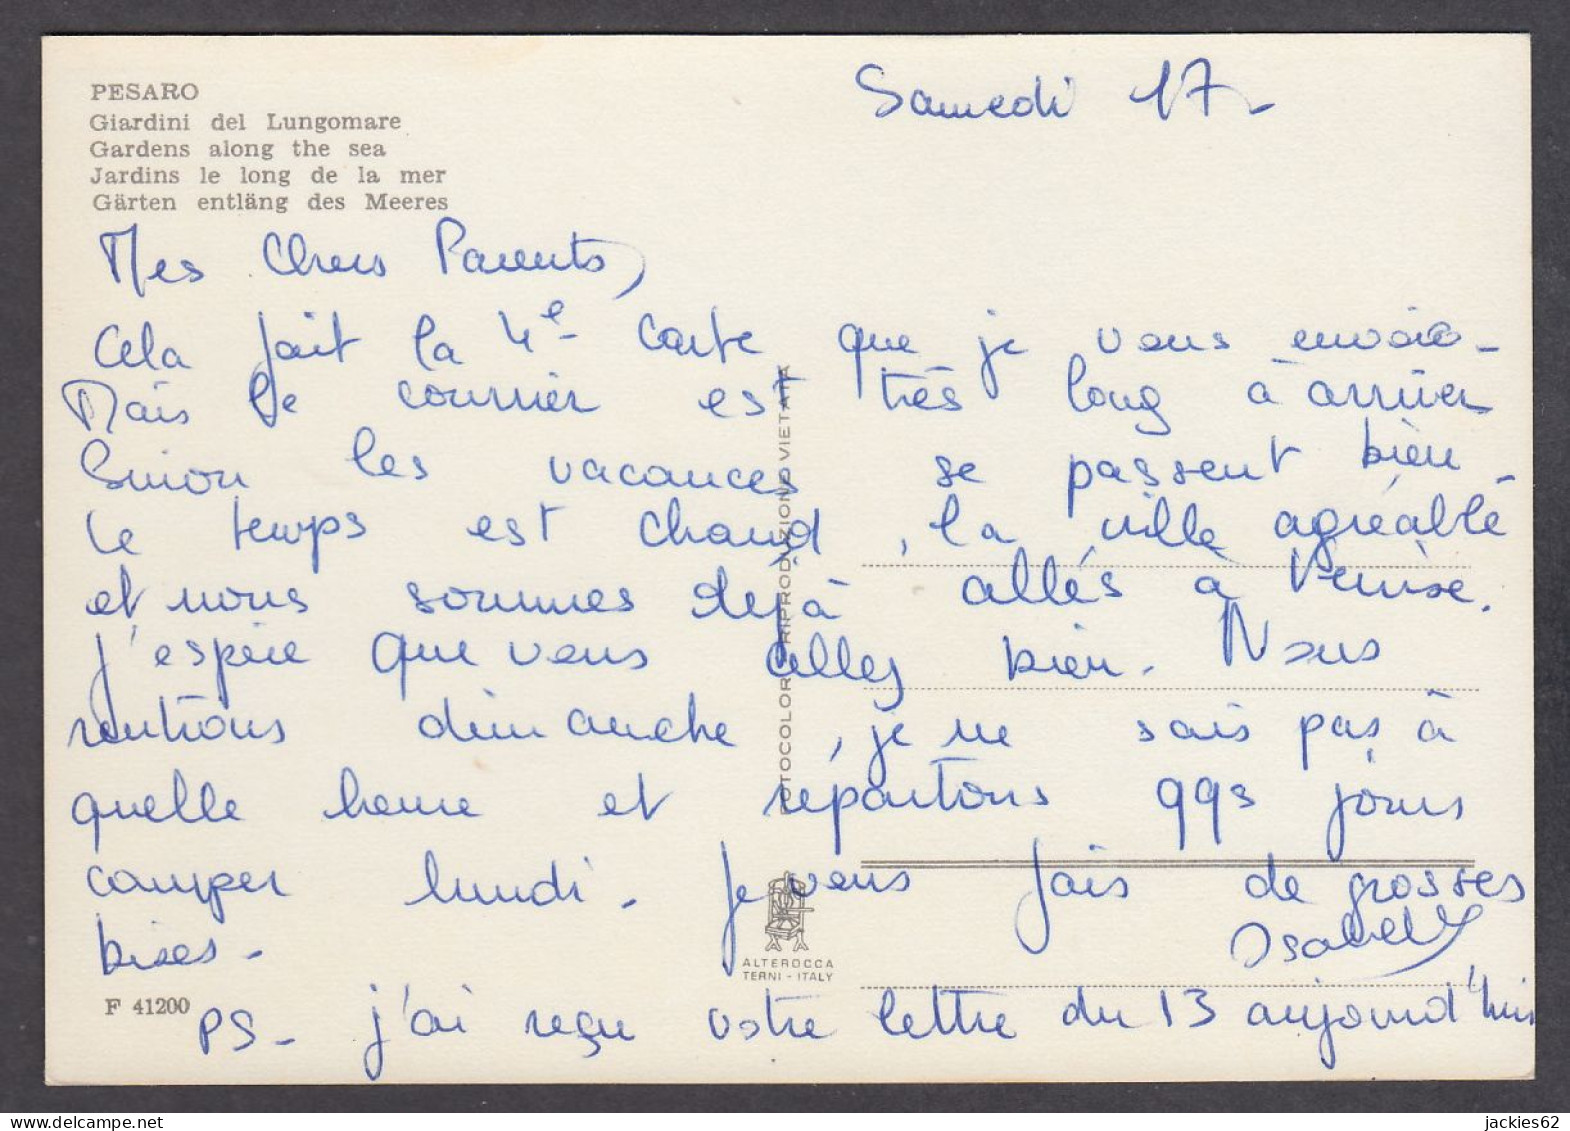 PESARO
Giardini del Lungomare
Gardens along the sea
Jardins le long de la mer
Gärten entläng des Meeres
Samedi 17-
Mes Chers Parents,
Cela fait la 4e carte que je vous envoie-
Mais le courrier est très long à arriver
Sinon les vacances se passent bien
le temps est chaud, la ville agréable
et nous sommes déjà allés à Venise.
J'espère que vous allez bien. Nous
rentrons dimanche, je ne sais pas à
quelle heure et repartons qqs jours
camper lundi. Je vous fais de grosses
bises-
Isabelle
PS- j'ai reçu votre lettre du 13 aujourd'hui
FOTOCOLOR RIPRODUZIONE VIETATA
ALTEROCCA
TERNI - ITALY
F 41200
jackies62